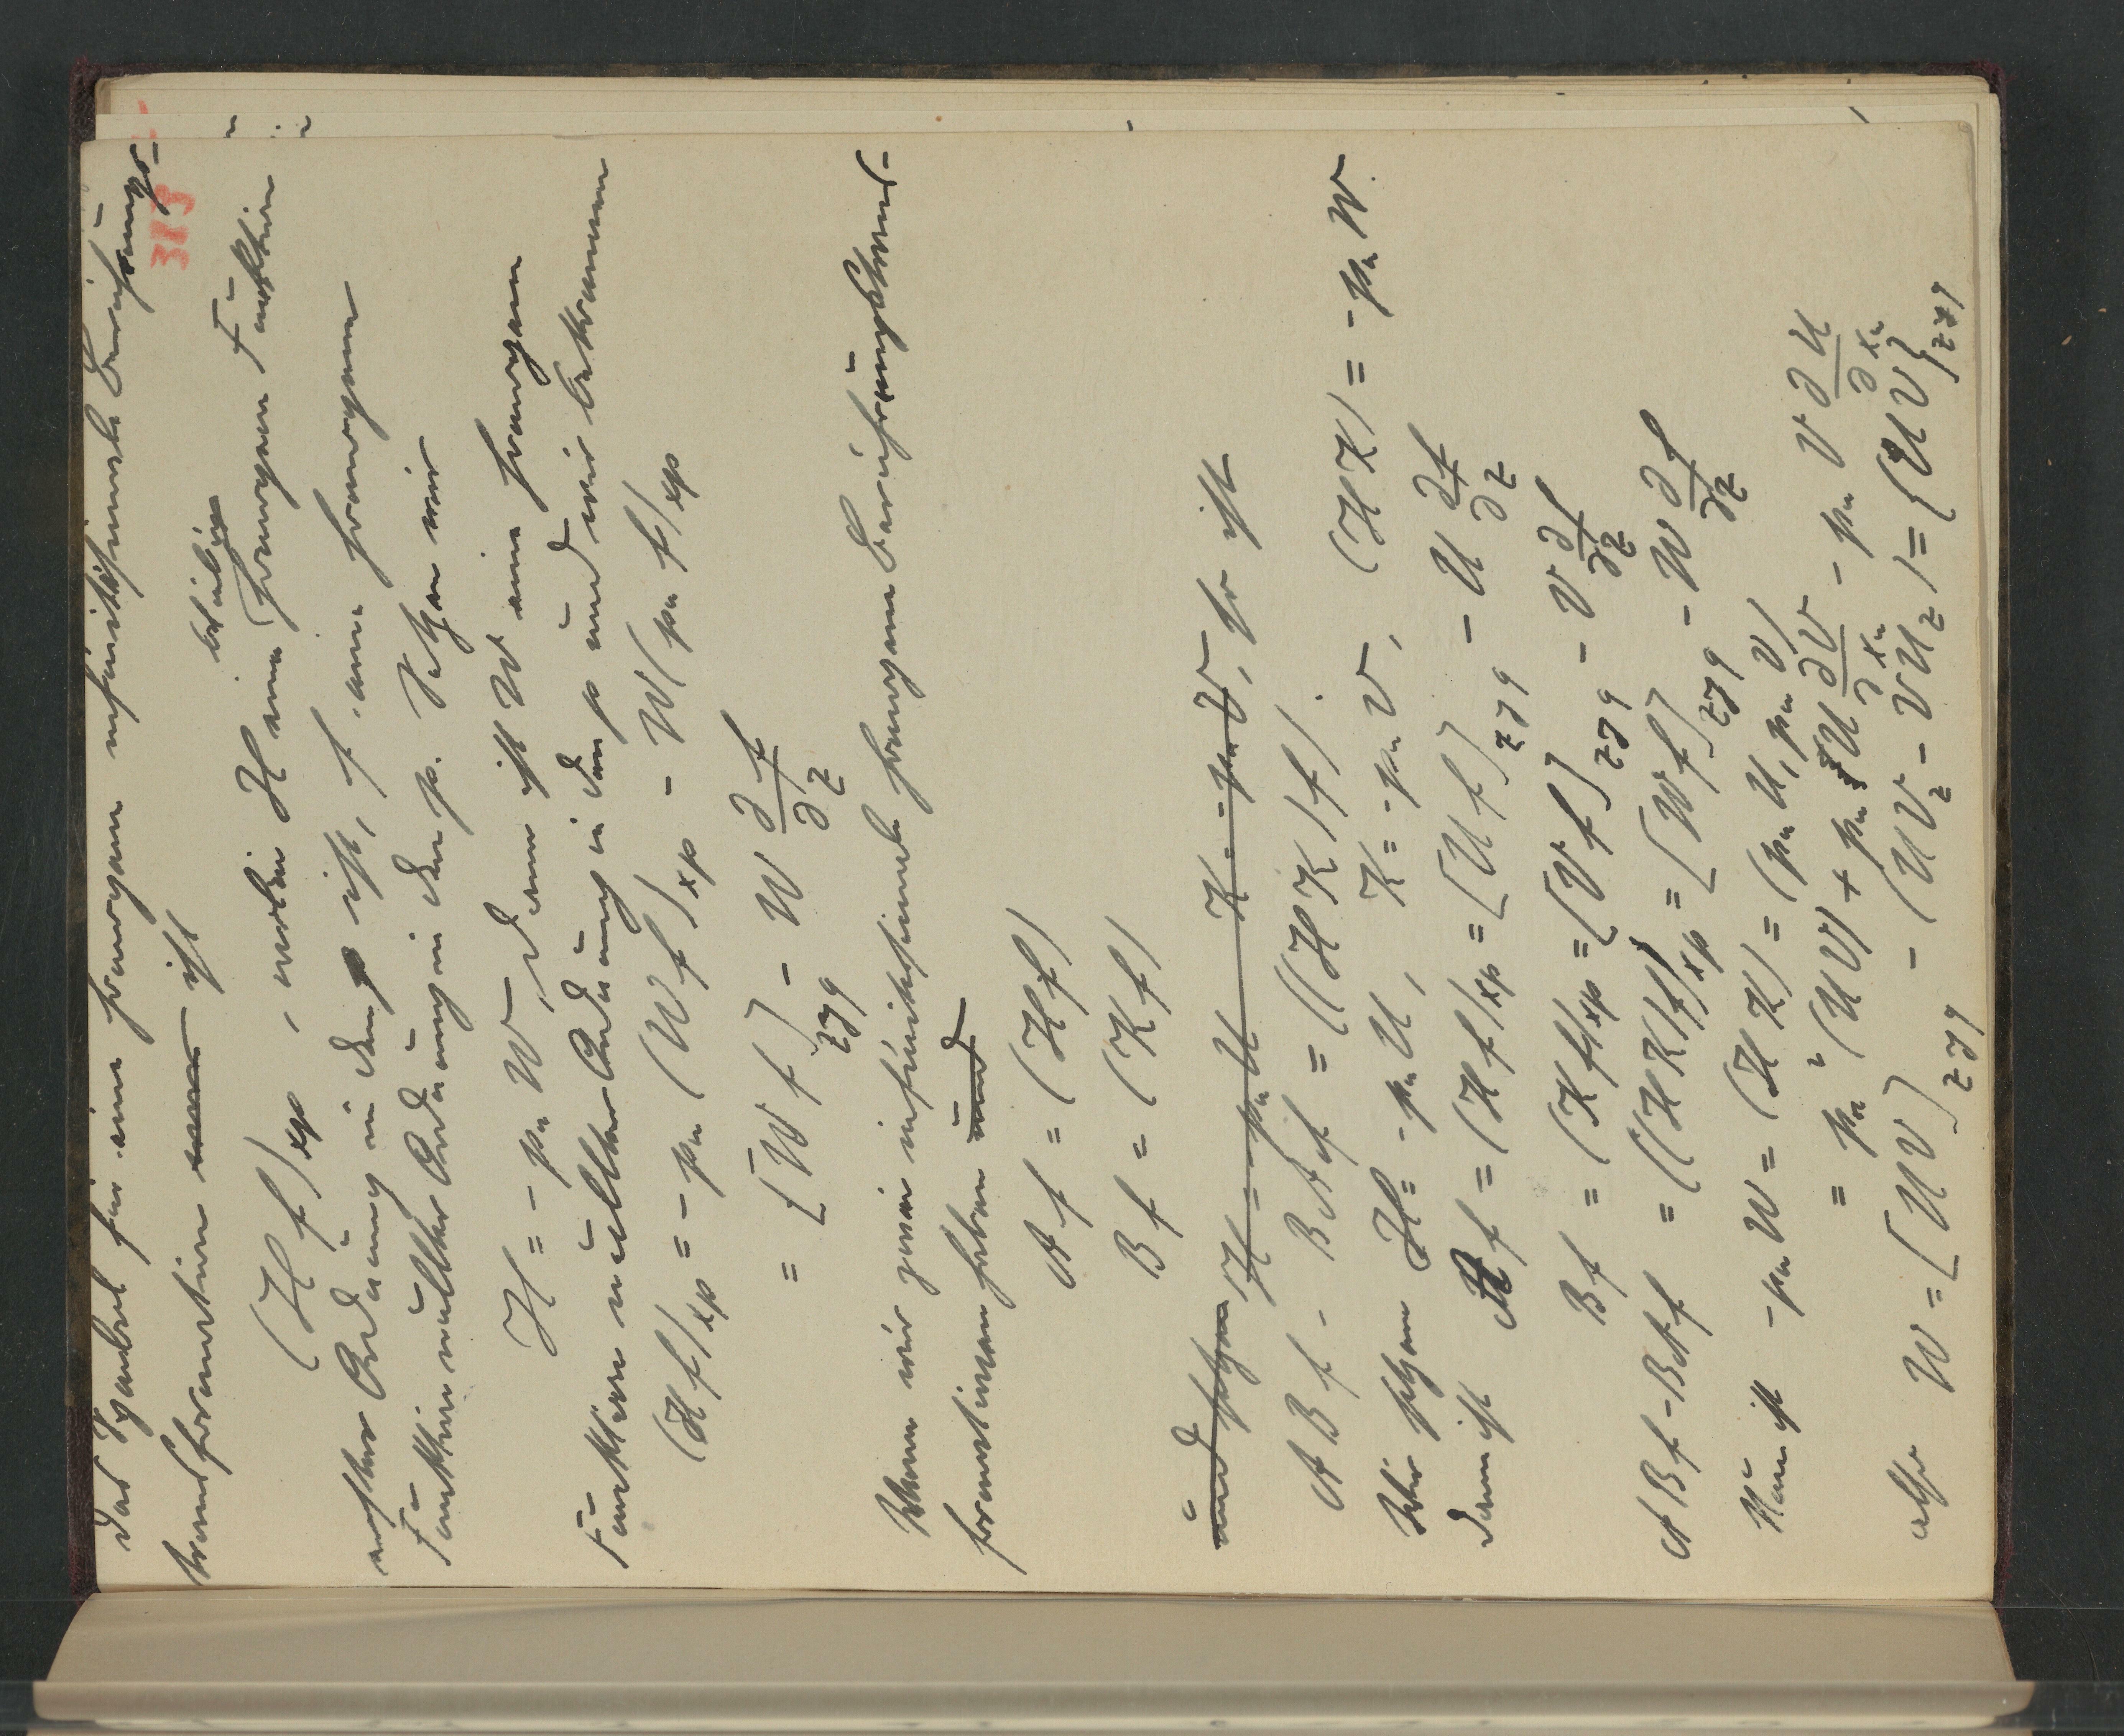 Das Symbol für eine homogene infinitesimale Berührungs-
313
transformation ist
(Hf)xp, wobei H eine beliebige homogene Funktion
erster Ordnung in den p ist, f eine homogene
Funktion nullter Ordnung in den p. Setzen wir
H = - pₙ W, dann ist W eine homogene
Funktion nullter Ordnung in den p und wir bekommen
(Hf)xp = - pₙ (Wf)xp - W(pₙ f)xp
= [Wf]zʒq - W ∂f/∂z
Wenn wir zwei infinitesimale homogene Berührungstrans-
formationen haben und
Af = (Hf)
Bf = (Kf)
und setzen H = - pₙU K = - pₙV, so ist
ABf - BAf = ((HK)f).
Wir setzen H = - pₙU, K = - pₙV, (HK) = - pₙW.
dann ist Af = (Hf)xp = [Uf]zʒq - U ∂f/∂z
Bf = (Kf)xp = [Vf]zʒq - V ∂f/∂z
ABf - BAf = ((HK)f)xp = [Wf]zʒq - W ∂f/∂z
Nun ist - pₙW = (HK) = (pₙU, pₙV)
= pₙ² (UV) + pₙ U ∂V/∂xₙ - pₙ V ∂U/∂xₙ
also W = [UV]zʒq - (UVz - VUz) = {UV}zʒq